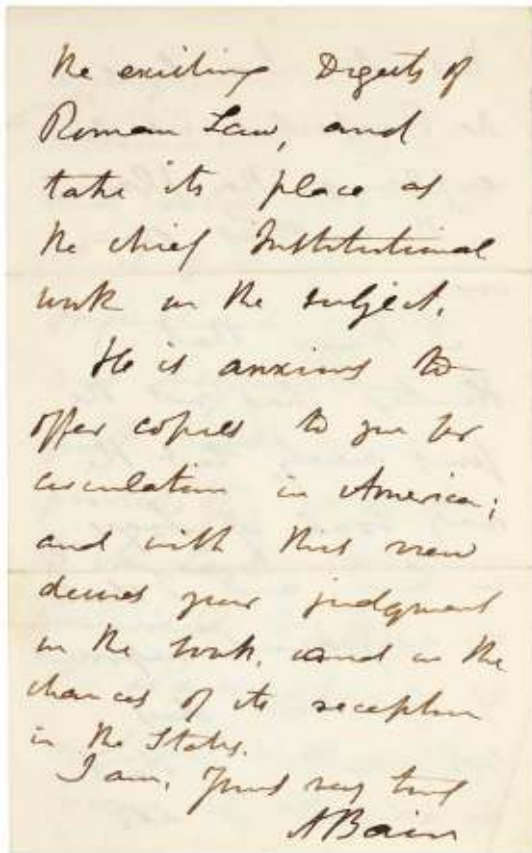 the existing Digests of
Roman Law, and
take its place as
the chief Institutional
work on the subject.
He is anxious to
offer copies to you for
circulation in America;
and with this view
desires your judgment
on the work, and on the
chances of its reception
in the States.
I am, yours very truly
A Bain